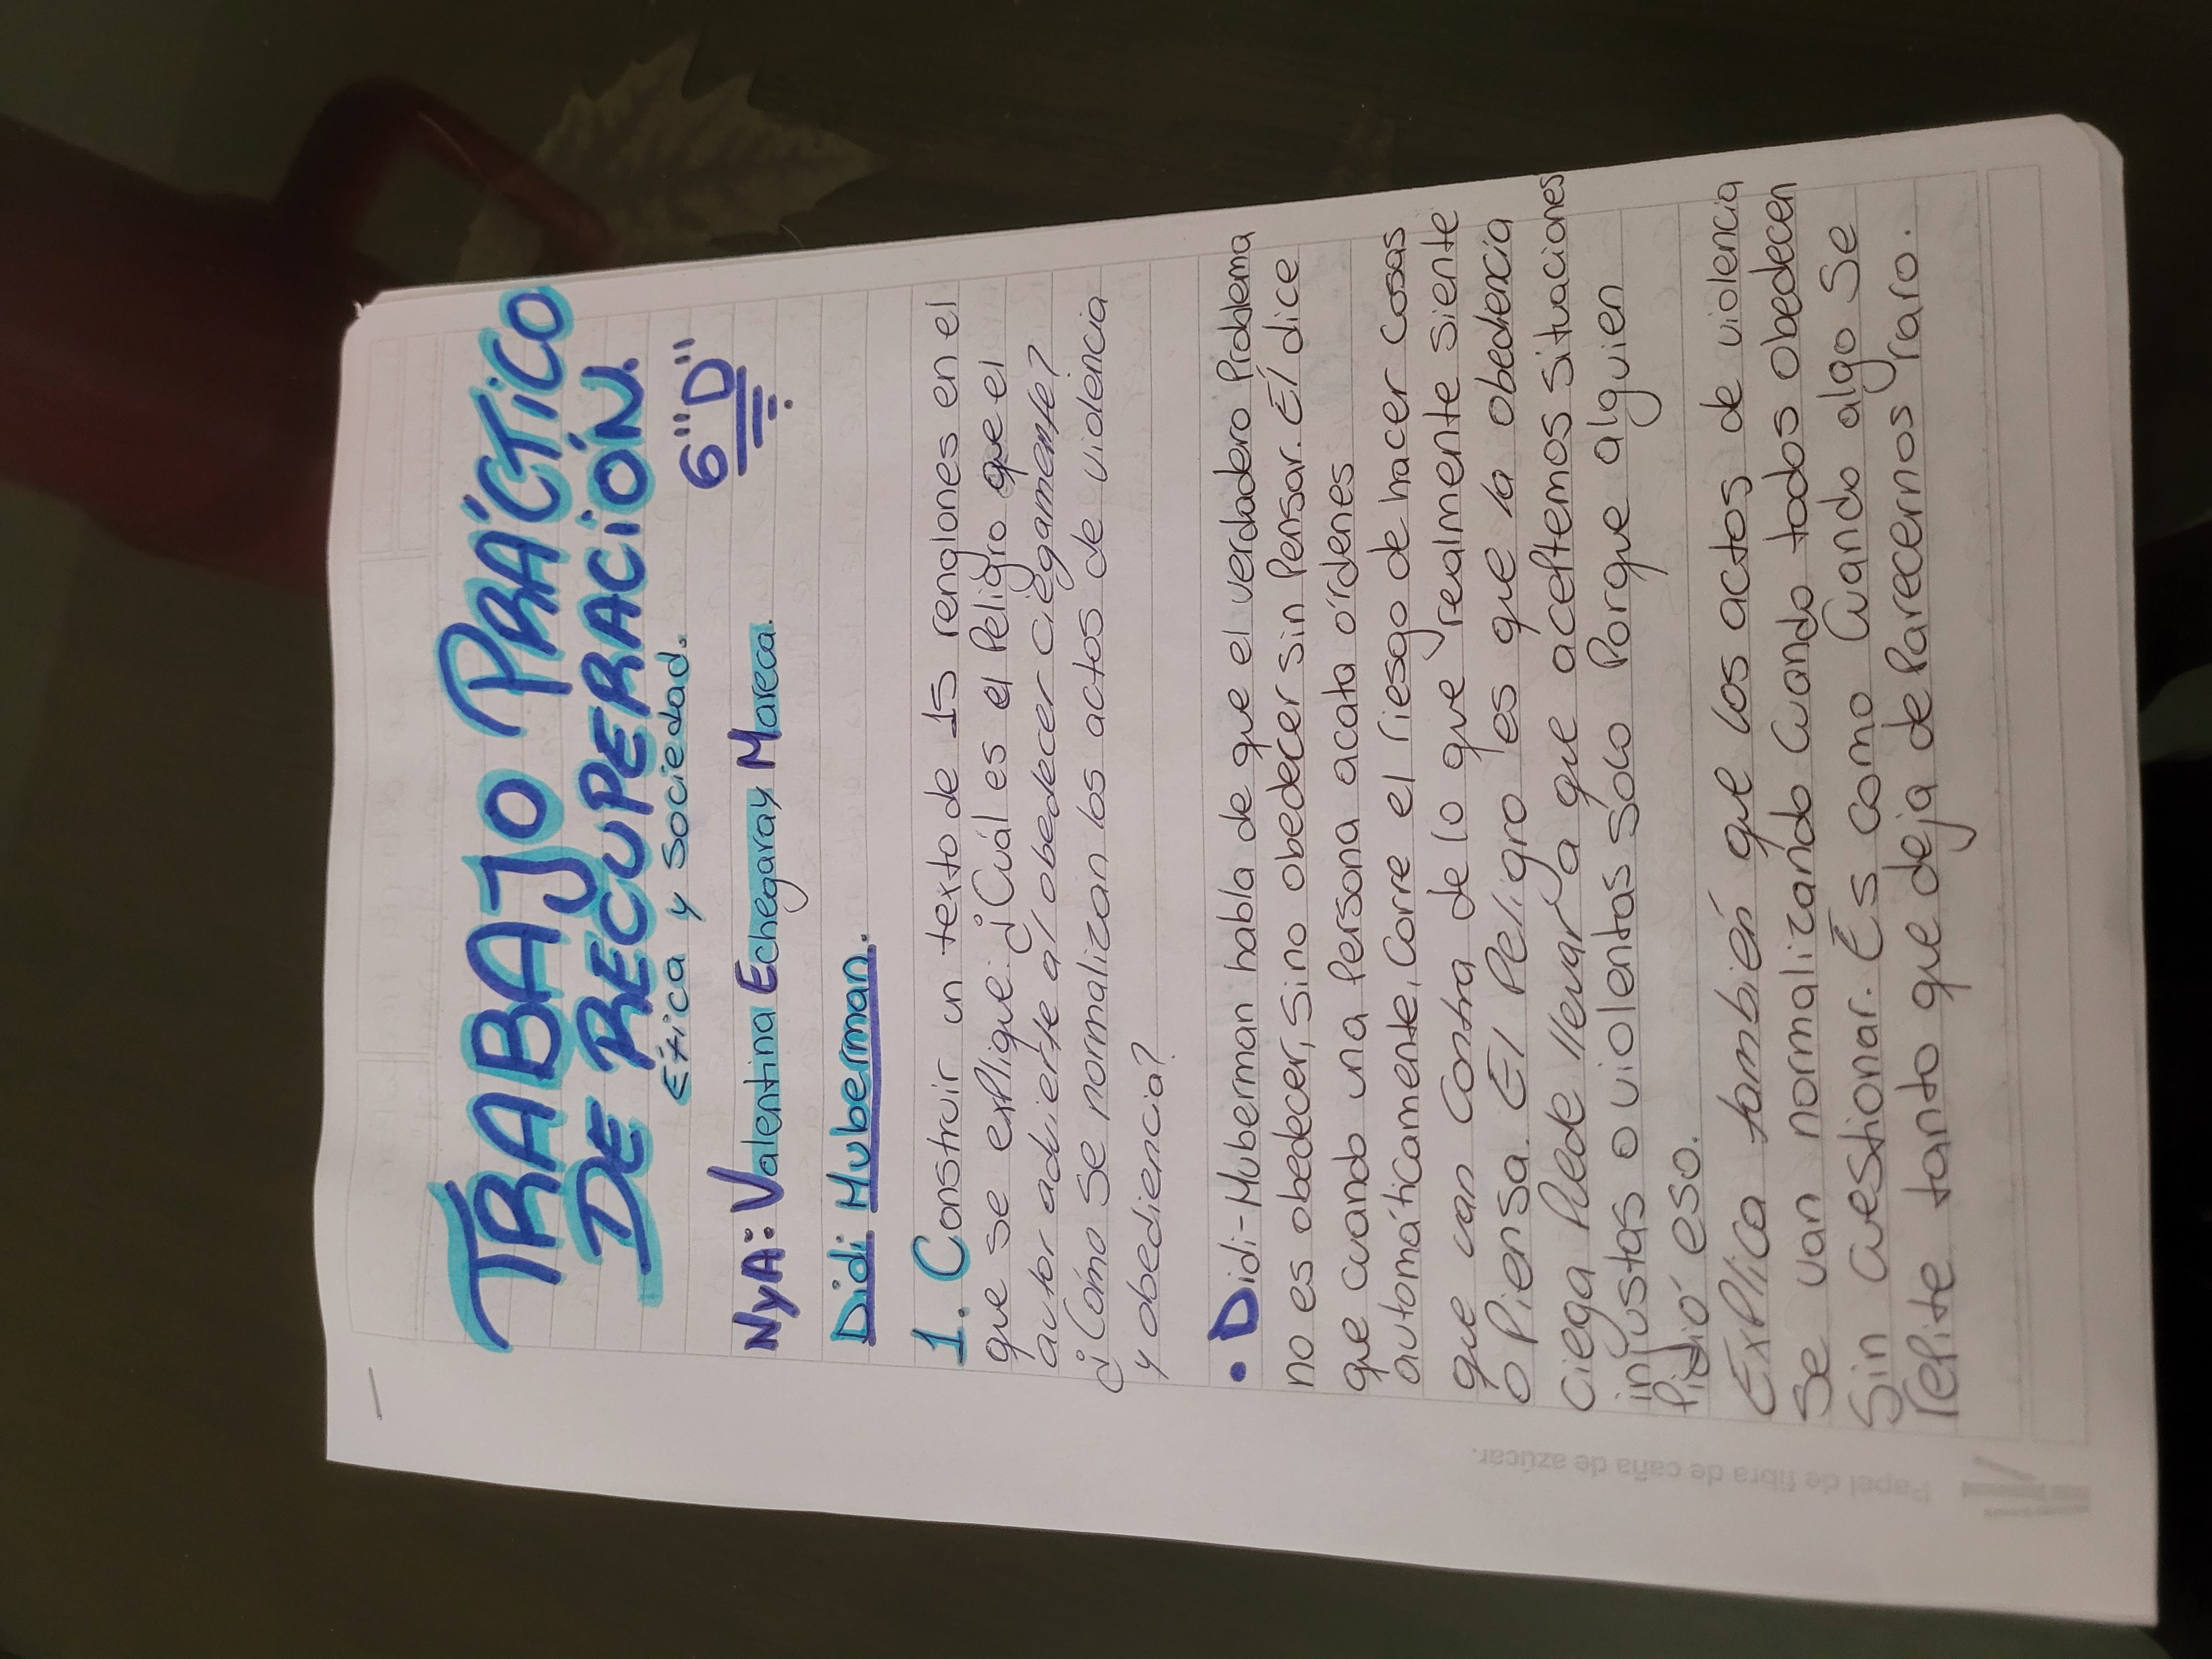 TRABAJO PRÁCTICO
DE RECUPERACIÓN.
Ética y sociedad.
6"D"
NyA: Valentina Echegaray Mareca.
Didi Huberman.
1. Construir un texto de 15 renglones en el
que se explique: ¿Cuál es el Peligro que el
autor advierte al obedecer ciegamente?
¿Cómo se normalizan los actos de violencia
y obediencia?
• Didi-Huberman habla de que el verdadero Problema
no es obedecer, sino obedecer sin Pensar. Él dice
que cuando una Persona acata órdenes
automáticamente, corre el riesgo de hacer cosas
que van contra de lo que realmente siente
o Piensa. El Peligro es que la obediencia
ciega Puede llevar a que aceptemos situaciones
injustas o violentas solo Porque alguien
Pidió eso.
Explica también que los actos de violencia
se van normalizando cuando todos obedecen
sin cuestionar. Es como cuando algo se
repite tanto que deja de Parecernos raro.
Papel de fibra de caña de azúcar.